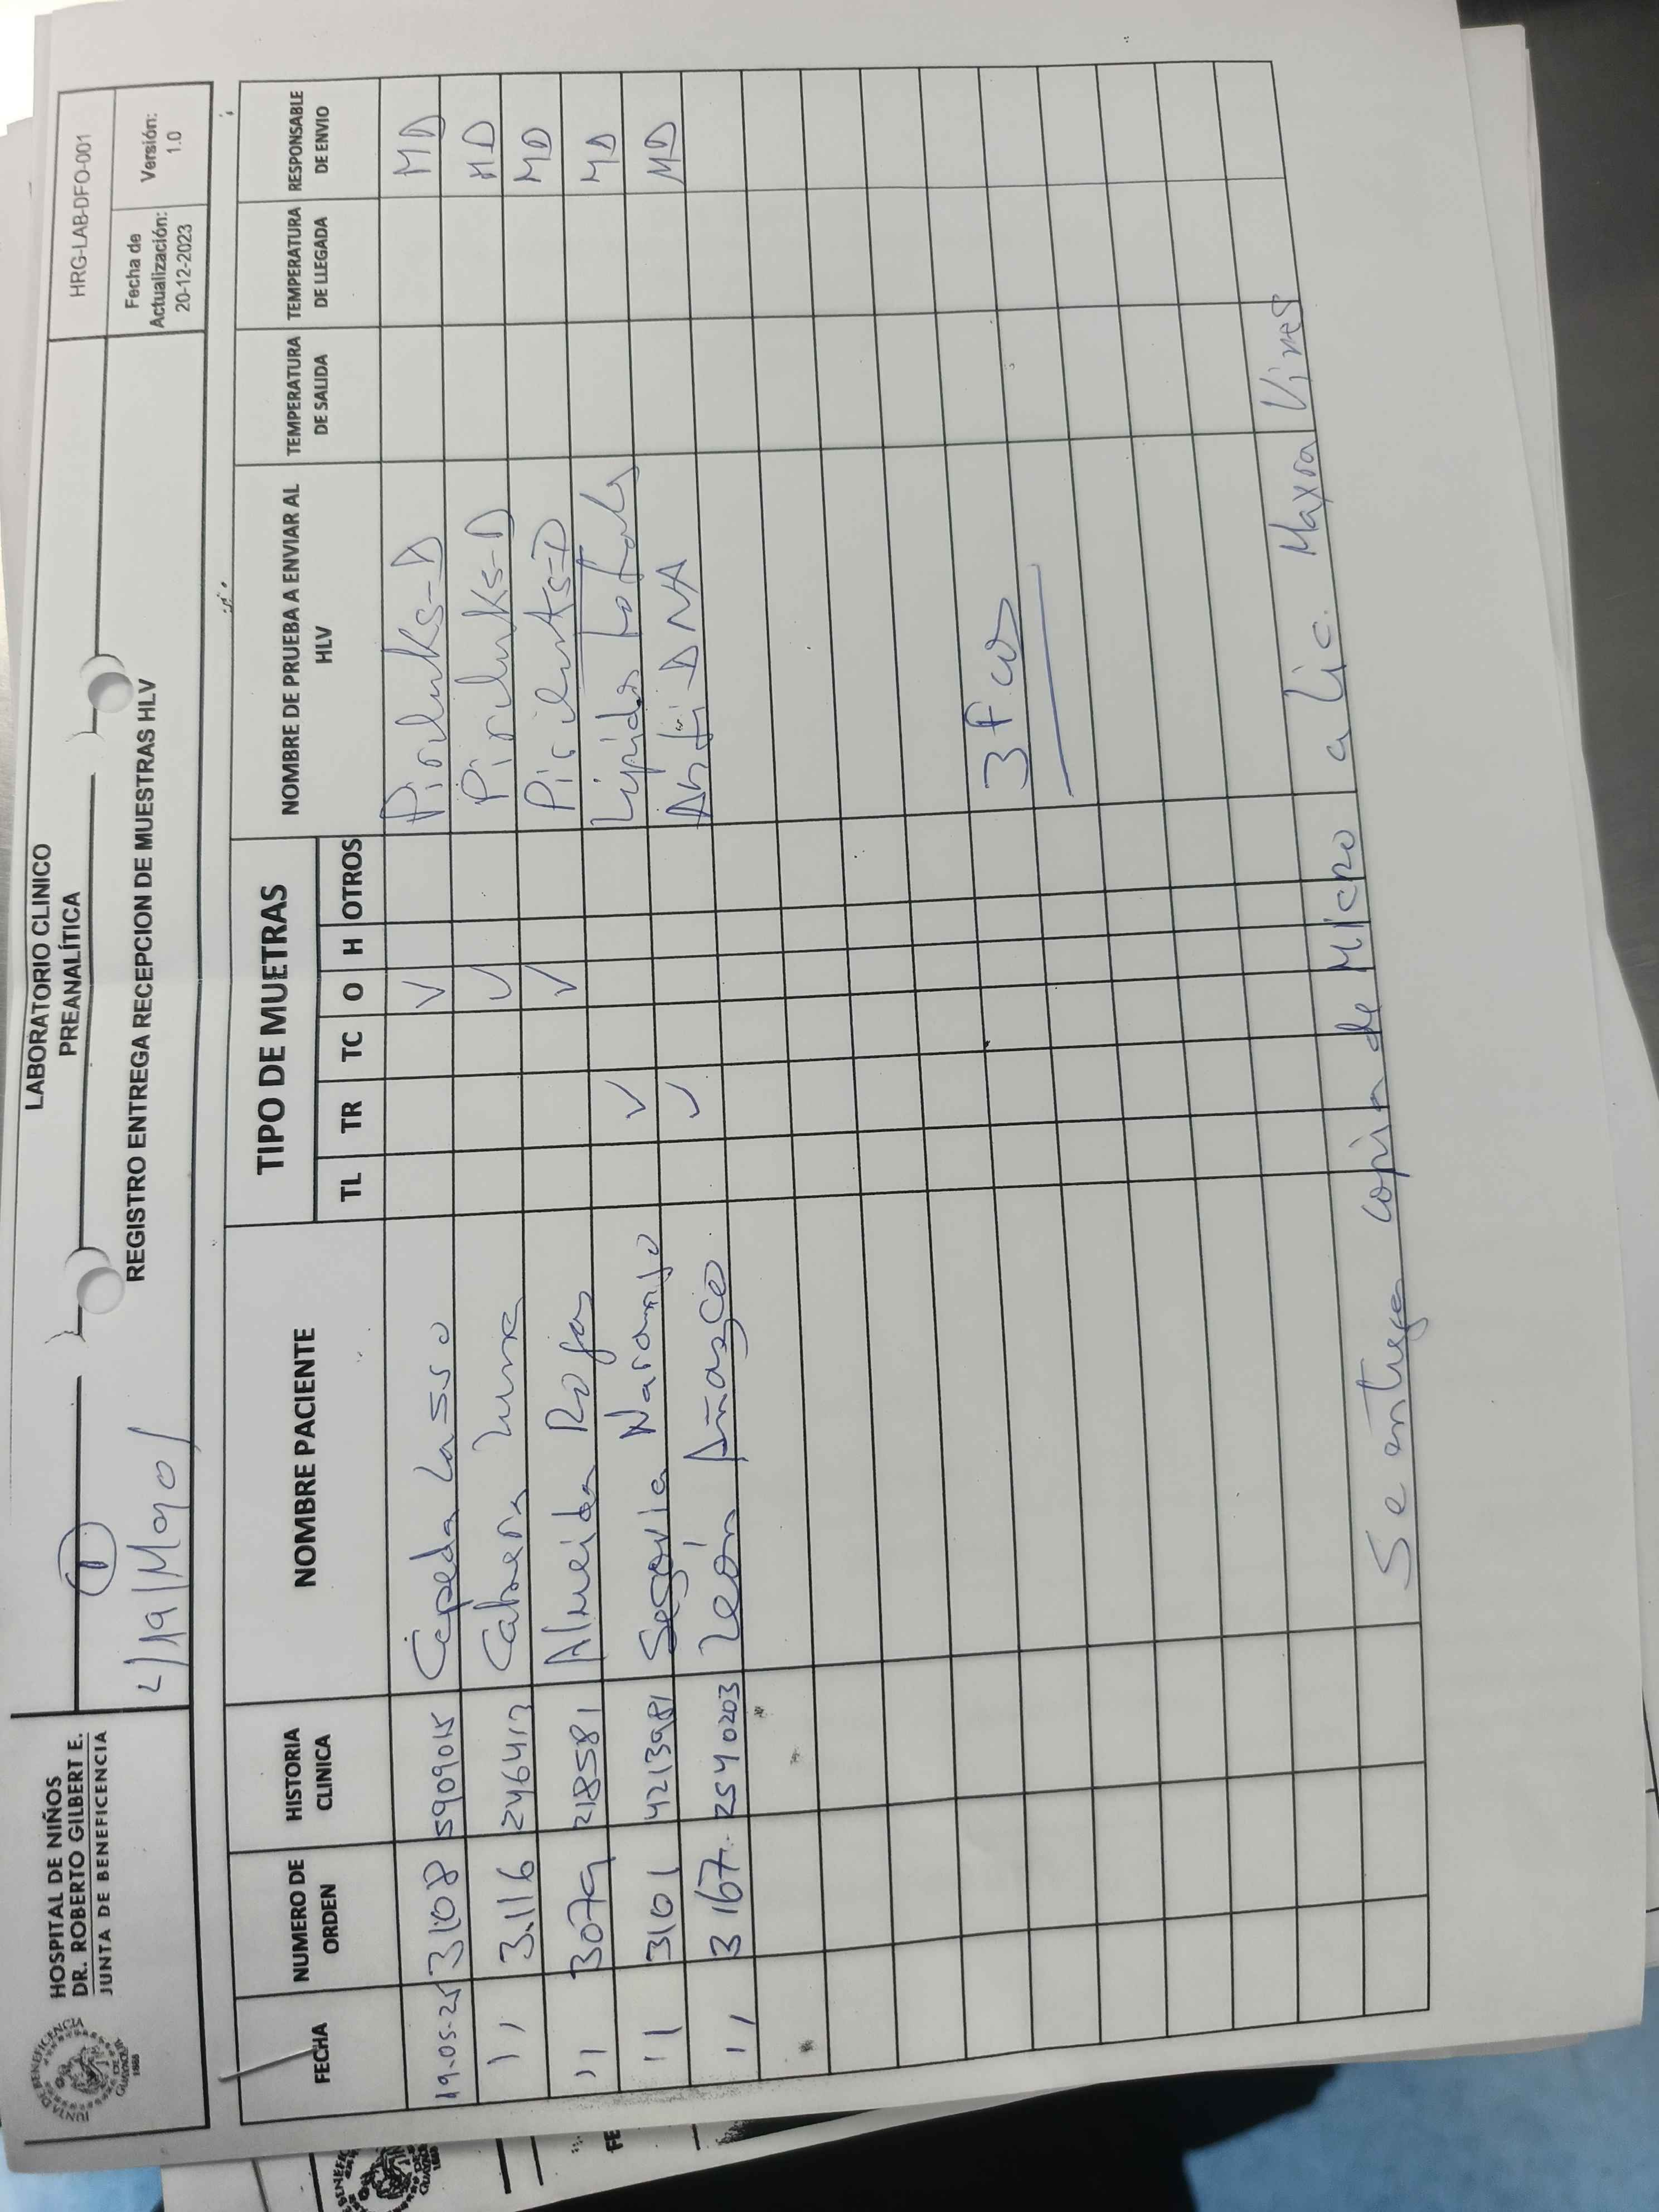 HOSPITAL DE NIÑOS
DR. ROBERTO GILBERT E.
JUNTA DE BENEFICENCIA
LABORATORIO CLINICO
PREANALÍTICA
HRG-LAB-DFO-001
1
19/Mayo/
REGISTRO ENTREGA RECEPCION DE MUESTRAS HLV
Fecha de Actualización: 20-12-2023
Versión: 1.0
FECHA NUMERO DE ORDEN HISTORIA CLINICA NOMBRE PACIENTE TIPO DE MUETRAS NOMBRE DE PRUEBA A ENVIAR AL HLV TEMPERATURA DE SALIDA TEMPERATURA DE LLEGADA RESPONSABLE DE ENVIO
TL TR TC O H OTROS
19-05-25 3108 5909015 Cepeda Lasso ✓ MD
'' 3116 Cabrera Luna ✓ MD
'' 3079 218581 Almeida Rojas ✓ MD
'' 3101 4213981 Segovia Naranjo ✓ Lipidos totales MD
'' 3167 2540203 León Añazco ✓ Anti DNA MD
3 fcos
Se entrega copia de Micro a Lic. Maxra Vines